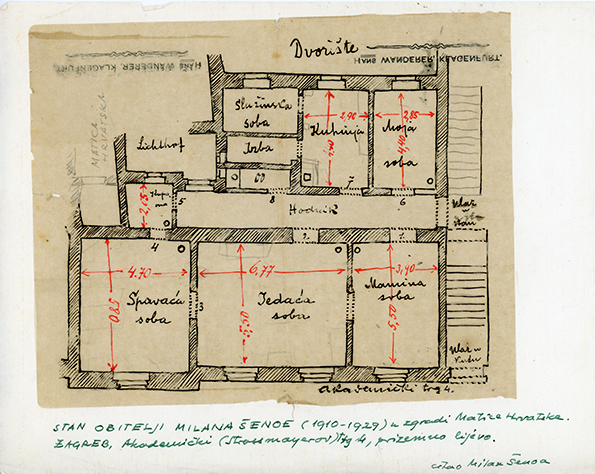 Dvorište
HANS WANDERER KLAGENFURT.
HANS WANDERER, KLAGENFURT.
MATICA
HRVATSKA
Lichthof
Služinska
soba
Izba
Kuhinja
2,90
Moja
soba
2,85
4,40
2,65
5
8
7
6
Hodnik
Ulaz
stan
4
2
1
4.70
Spavaća
soba
5.80
3
6,77
Jedaća
soba
5.50
3,40
Mamina
soba
5.50
Ulaz u
kuću
Akademički trg 4.
STAN OBITELJI MILANA ŠENOE (1910-1929) u zgradi Matice Hrvatske.
ZAGREB, Akademički (Strossmayerov) trg 4, prizemno lijevo.
crtao Milan Šenoa